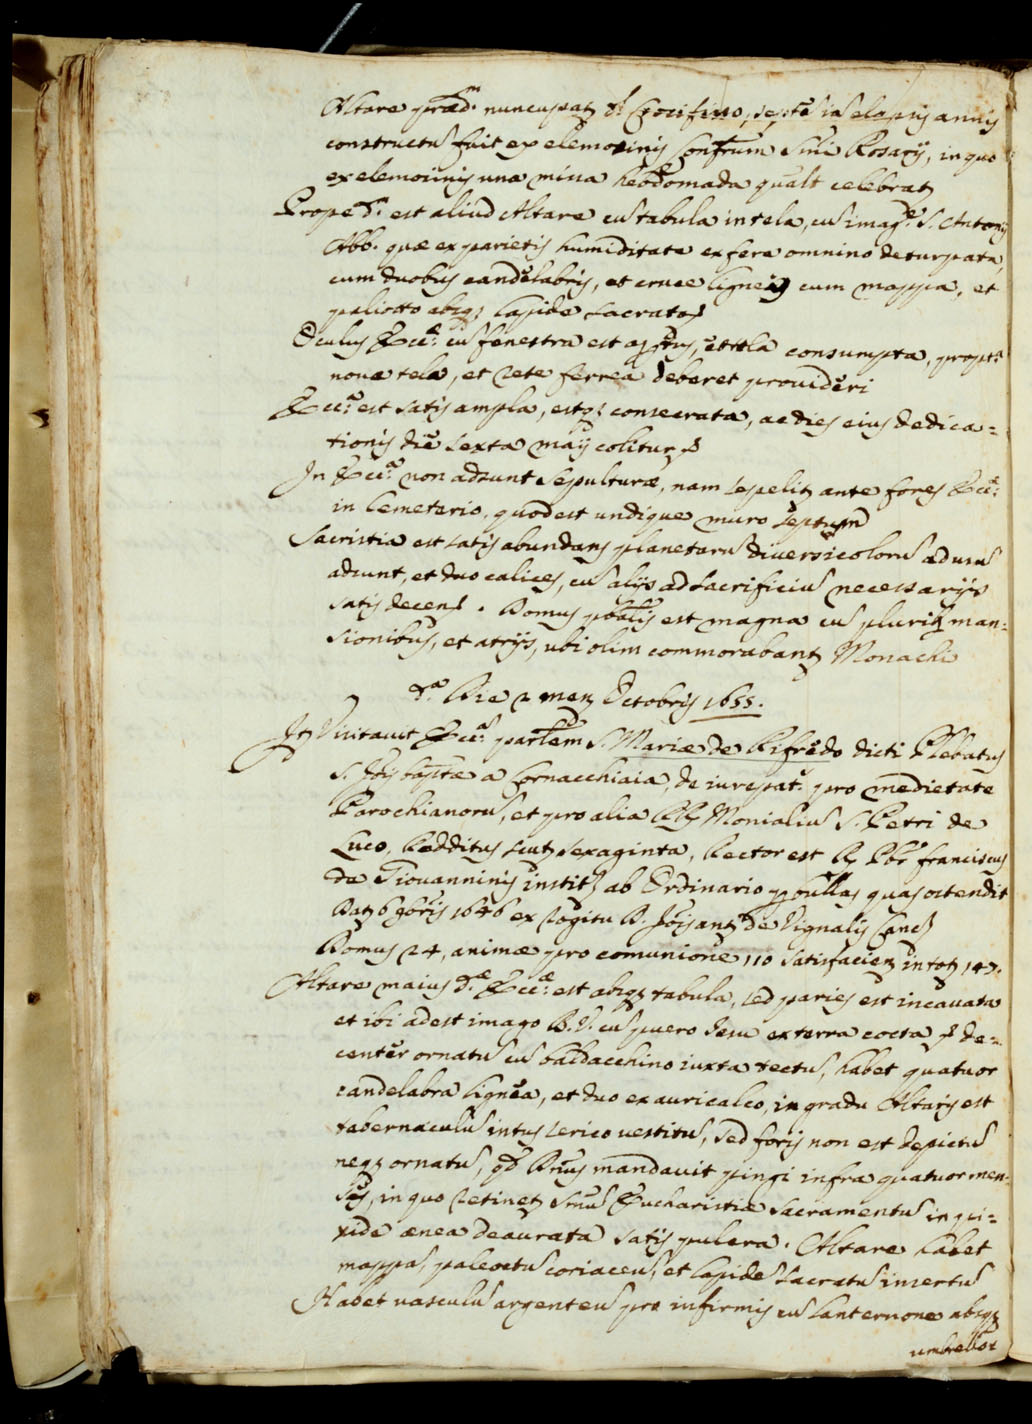 Altare præd.m nuncupatʒ il Crocifisso, septẽ iã elapsis annis
constructũ fuit ex elemosinis Confrum Smi Rosarij, in quo
ex elemosinis una missa hebdomada qualt celebratʒ
Prope dm. est aliud Altare cũ tabula in tela, cũ imagne S. Antonij
Abb. quæ ex parietis humiditate ex fere omnino deturpata,
cum duobus candelabris, et cruce ligneis cum mappa, et
paliotto absqʒ lapide sacrato
Oculus Eccæ. cũ fenestra est apertus, et tela consumpta, propt.
noua tela, et rete ferrea deberet prouideri
Ecca. est satis ampla, estqʒ consecrata, ac dies eius dedica=
tionis die sexta maij colitur
In Ecca. non adsunt sepulturæ, nam sepelitʒ ante fores Eccæ.
in Cemeterio, quod est undique muro septum
Sacristia est satis abundans planetarũ diuersicolorũ ad usũ
adsunt, et duo calices, cũ alijs ad sacrificiũ necessarijs
satis decens. Domus pbralis est magna cũ plurib man=
sionibus, et atrijs, ubi olim commorabantʒ Monachi
Da. Die 2 mens Octobris 1655.
Itʒ Visitauit Eccã. parlem S. Mariæ de Rifredo dicti Plebatus
S. Jois baptæ a Cornacchiaia, de iurepat. pro medietate
Parochianorũ, et pro alia RR Monialiũ S. Petri de
Luco, Redditus scut sexaginta, Rector est R Pbr franciscus
de Giouanninis instits ab Ordinario p bullas quas ostendit
Dat 6 9bris 1646 ex rogitu D. Jois ant de Vignalis Canc
Domus 24, animæ pro comunione 110 satisfacien in tot 147.
Altare maius dæ. Eccæ. est absqʒ tabula, sed paries est incauata
et ibi adest imago B. V. cũ puero Iesu ex terra cocta de=
center ornatũ cũ baldacchino iuxta tectũ, habet quatuor
candelabra lignea, et duo ex auricalco, in gradu Altaris est
tabernaculũ intus serico uestitũ, sed foris non est depictũ
neqʒ ornatũ, qd Dnus mandauit pingi infra quatuor men=
ses, in quo retinetʒ Smũ Eucharistiæ Sacramentũ in pi=
xide ænea deaurata satis pulcra. Altare habet
mappã, paleottũ coriaceũ, et lapidẽ sacratũ insertũ
Habet uasculũ argenteũ pro infirmis cũ lanternone absqʒ
umbrella